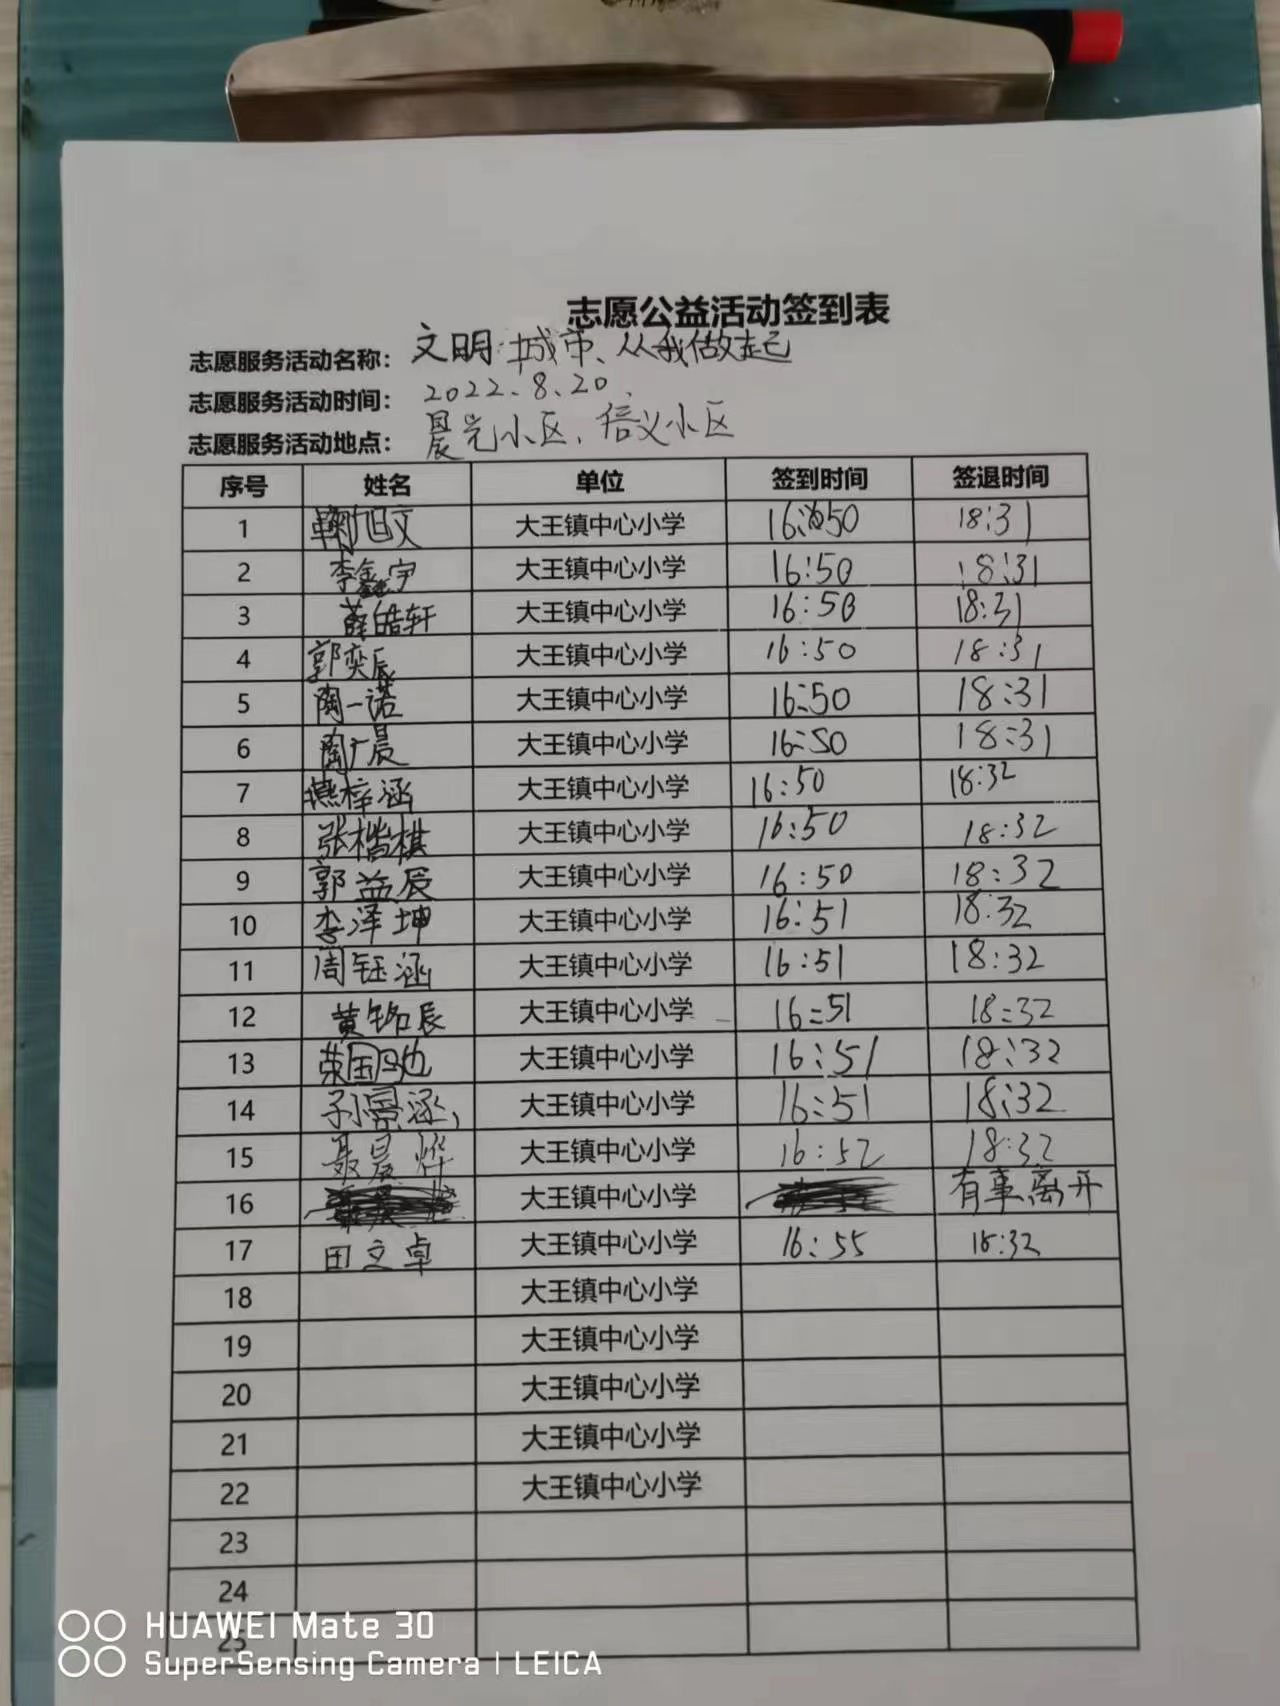 志愿公益活动签到表
志愿服务活动名称： 文明城市、从我做起
志愿服务活动时间： 2022.8.20.
志愿服务活动地点： 晨光小区、信义小区
序号 姓名 单位 签到时间 签退时间
1 鞠旭文 大王镇中心小学 16:50 18:31
2 李鑫宇 大王镇中心小学 16:50 18:31
3 薛皓轩 大王镇中心小学 16:50 18:31
4 郭奕辰 大王镇中心小学 16:50 18:31
5 陶一诺 大王镇中心小学 16:50 18:31
6 陶广晨 大王镇中心小学 16:50 18:31
7 燕梓涵 大王镇中心小学 16:50 18:32
8 张楷棋 大王镇中心小学 16:50 18:32
9 郭益辰 大王镇中心小学 16:50 18:32
10 李泽坤 大王镇中心小学 16:51 18:32
11 周钰涵 大王镇中心小学 16:51 18:32
12 黄铭辰 大王镇中心小学 16:51 18:32
13 大王镇中心小学 16:51 18:32
14 孙景涵 大王镇中心小学 16:51 18:32
15 聂晨烨 大王镇中心小学 16:52 18:32
16 大王镇中心小学 有事离开
17 田文卓 大王镇中心小学 16:55 18:32
18 大王镇中心小学
19 大王镇中心小学
20 大王镇中心小学
21 大王镇中心小学
22 大王镇中心小学
23
24
25
HUAWEI Mate 30
SuperSensing Camera | LEICA